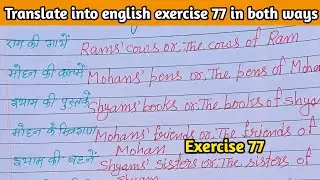 Translate into english exercise 77 in both ways
राम की गायें Rams' cows or, The cows of Ram
मोहन की कलमें Mohans' pens or, The pens of Mohan
श्याम की पुस्तकें Shyams' books or, The books of Shyam
मोहन के मित्रगण Mohans' friends or, The friends of
Mohan
श्याम की बहनें Shyams' sisters or, The sisters of
Exercise 77